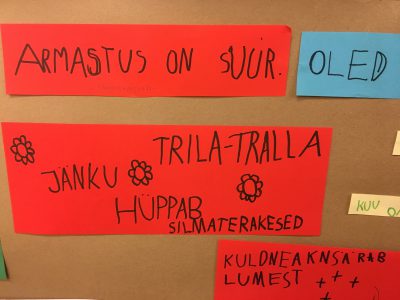 ARMASTUS ON SUUR.
OLED
TRILA-TRALLA
JÄNKU
HÜPPAB
SILMATERAKESED
KUU
KULDNE AKNSÄRAB
LUMEST